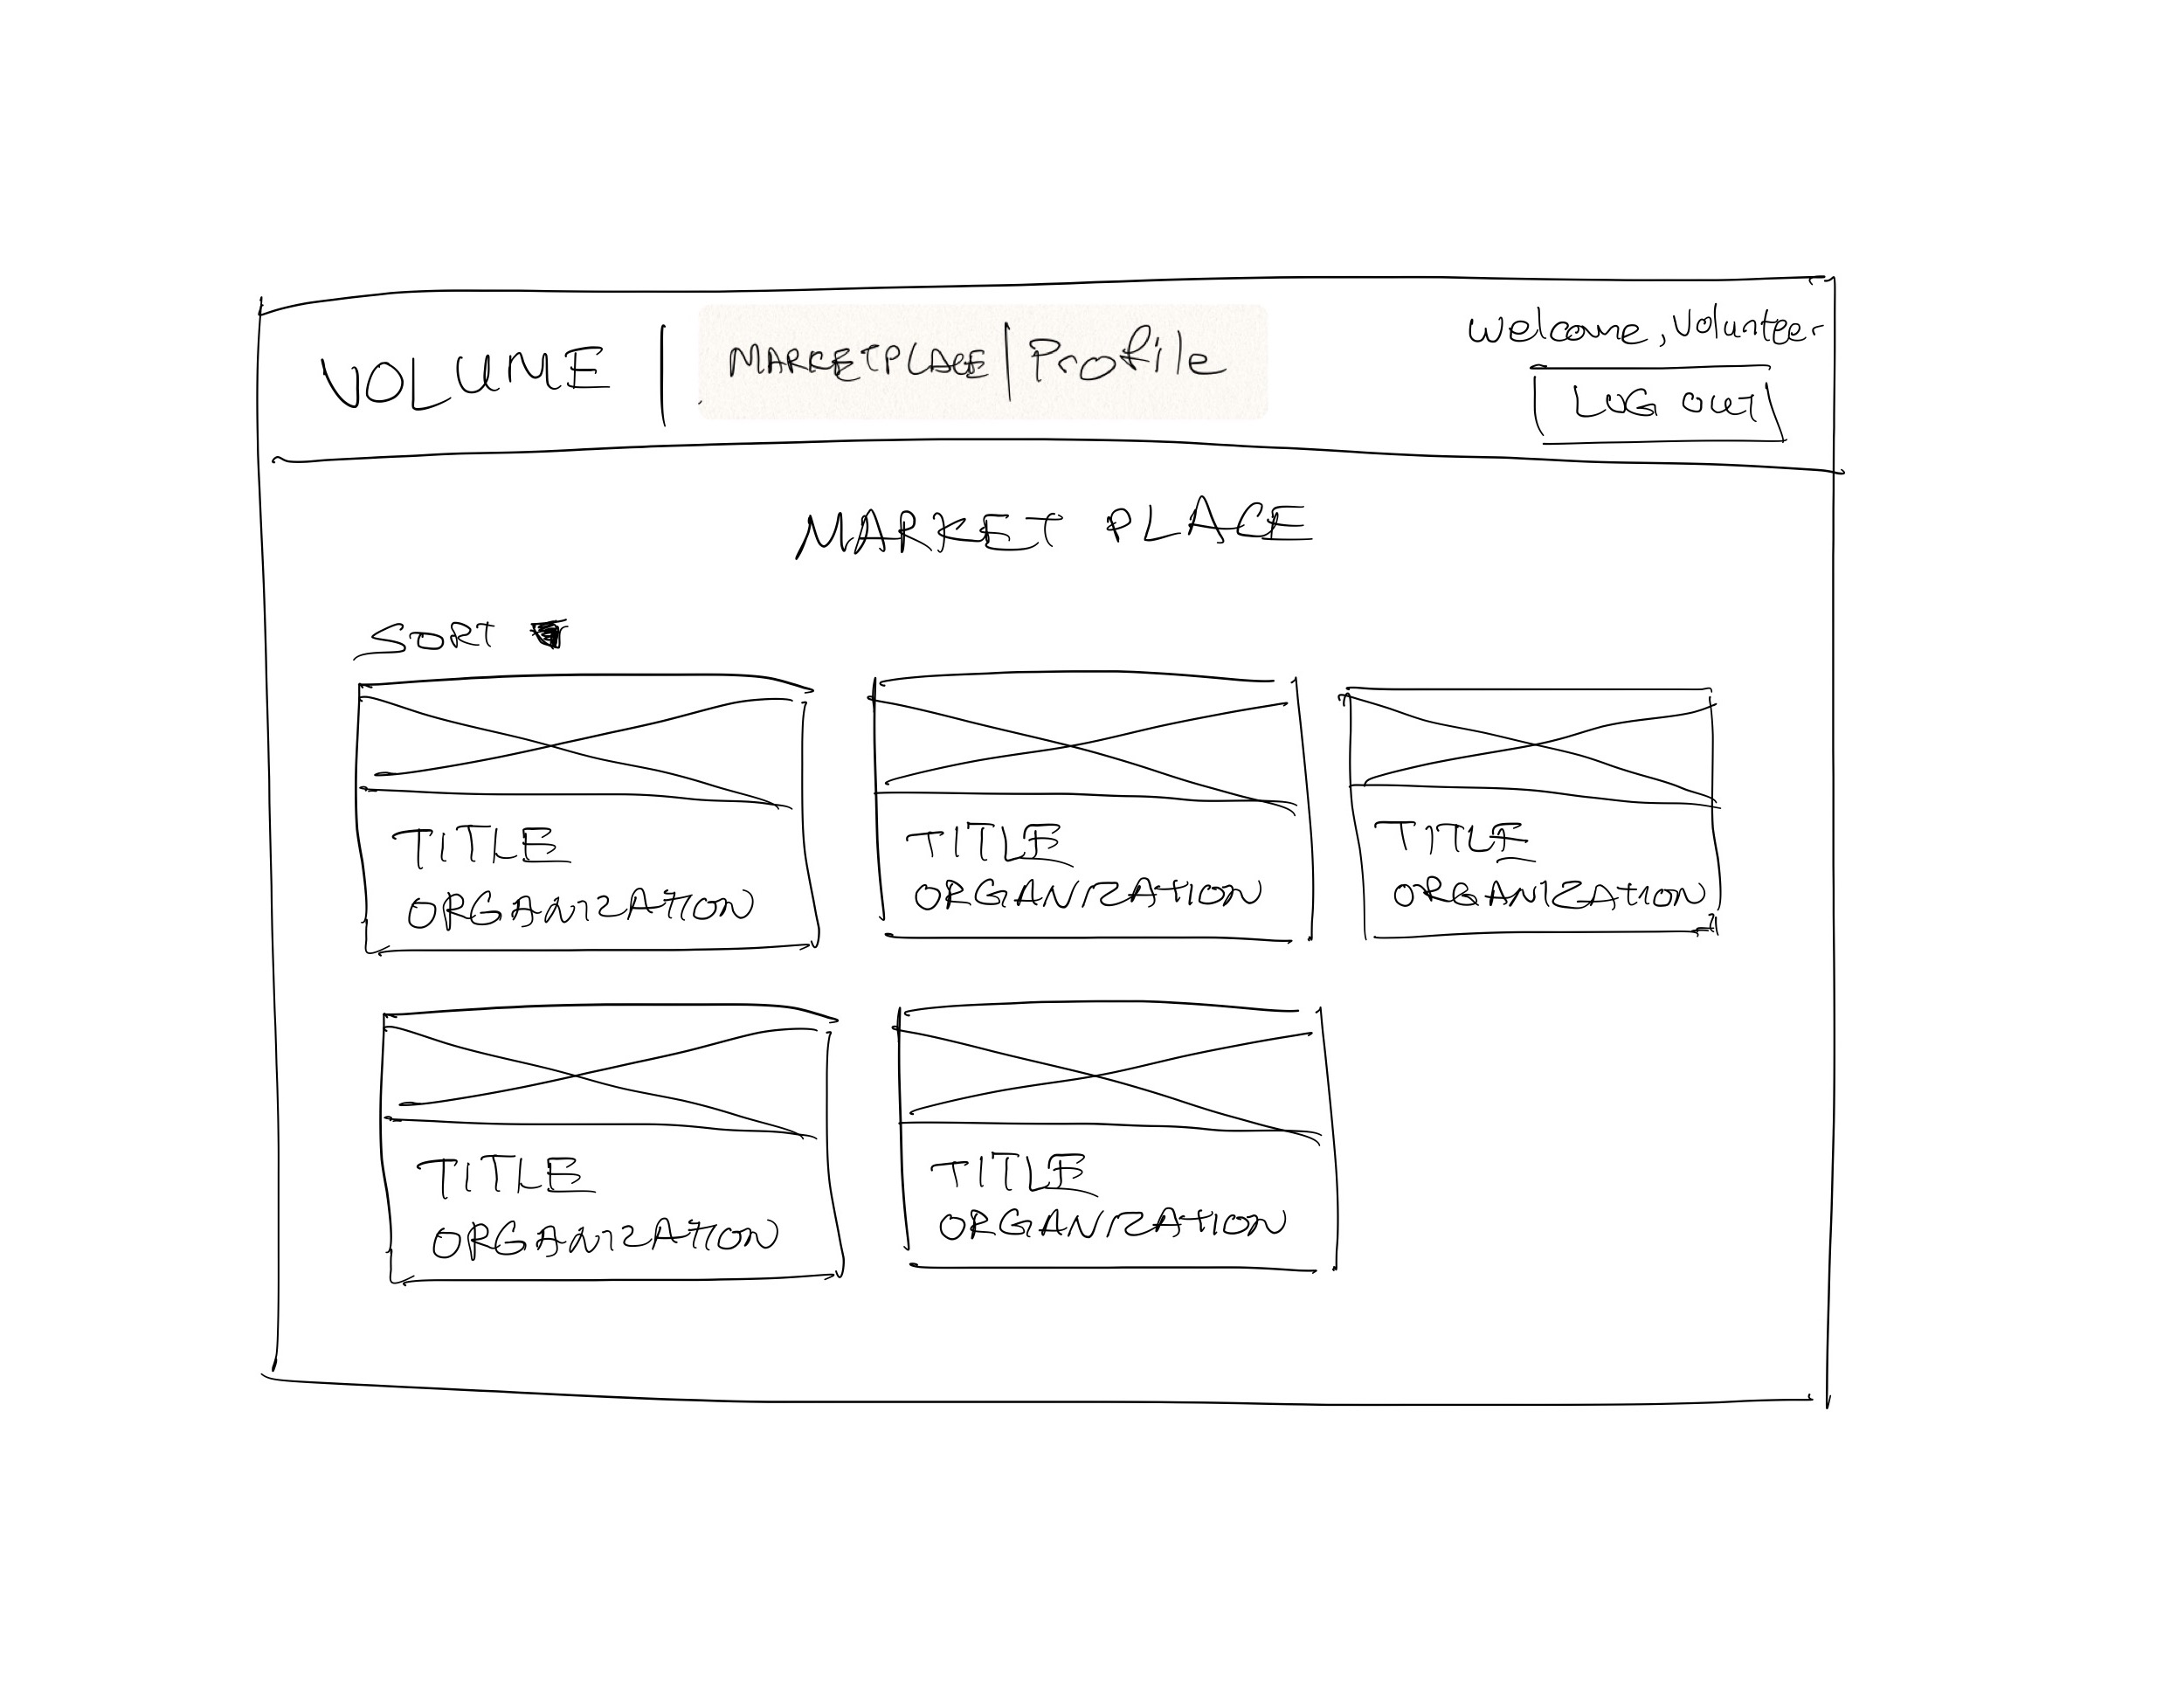 VOLUME | MARKETPLACE | Profile
welcome, Volunteer
LOG OUT
MARKET PLACE
SORT
TITLE
ORGANIZATION
TITLE
ORGANIZATION
TITLE
ORGANIZATION
TITLE
ORGANIZATION
TITLE
ORGANIZATION